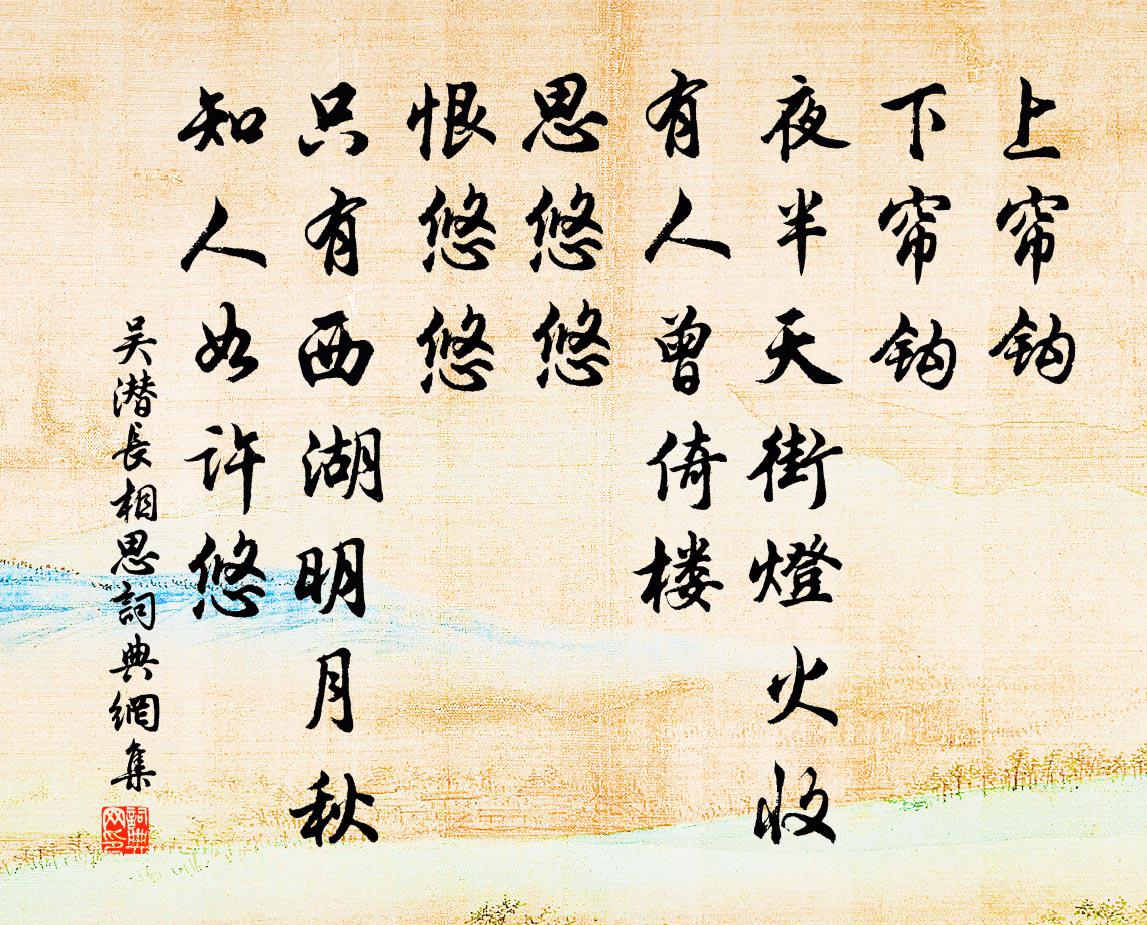 上帘钩
下帘钩
夜半天街燈火收
有人曾倚楼
思悠悠
恨悠悠
只有西湖明月秋
知人如许悠
吴潜長相思詞典網集
詞典
网印